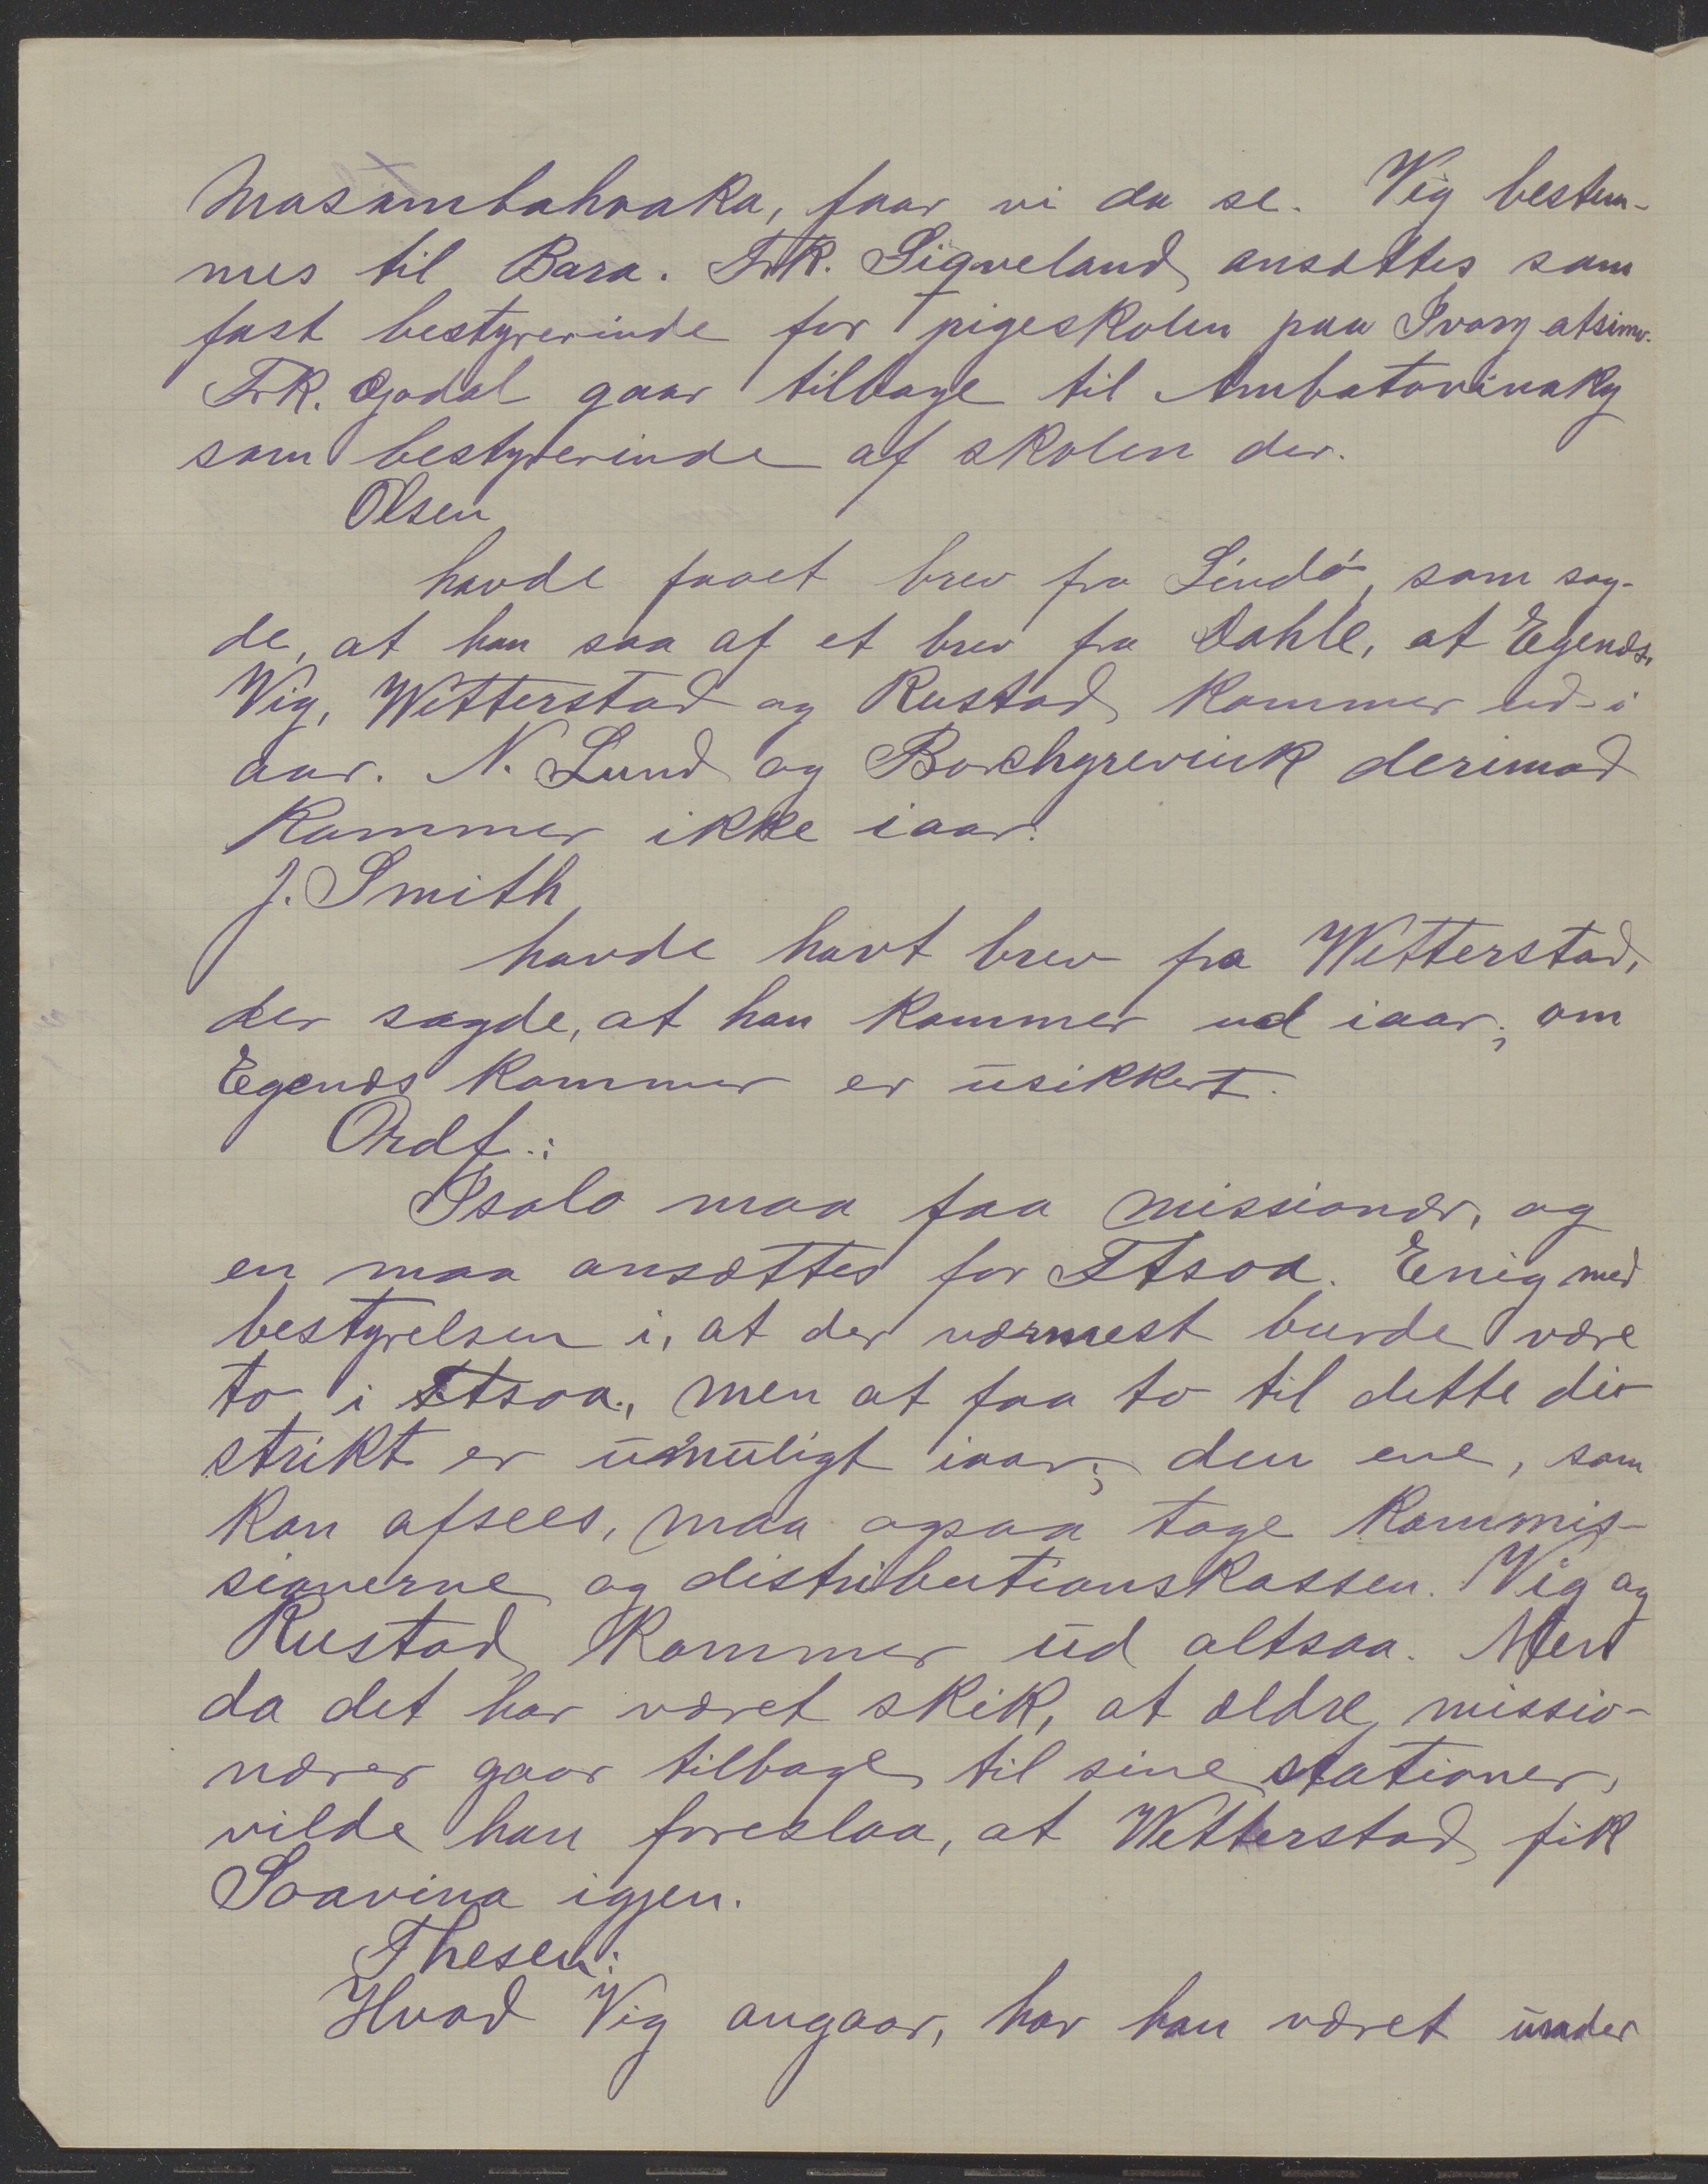 Masambahoaka, faar vi da se. Vig bestem-
mes til Bara. Frk. Sigveland ansættes som
fast bestyrerinde for pigeskolen paa Ivory atsimo.
Frk. Gjødal gaar tilbage til Ambatovinaky
som bestyrerinde af skolen der.
Olsen
havde faaet brev fra Lindø, som sag-
de, at han saa af et brev fra Dahle, at Egenæs,
Vig, Wetterstad og Rustad kommer ud i
aar. N. Lund og Borchgrevink derimod
kommer ikke iaar.
J. Smith
havde havt brev fra Wetterstad,
der sagde, at han kommer ud iaar; om
Egenæs kommer er usikkert.
Ordf.:
Isalo maa faa missionær, og
en maa ansættes for Ftsoa. Enig med
bestyrelsen i, at der nærmest burde være
to i Ftsoa., men at faa to til dette di-
strikt er umuligt iaar; den ene, som
kan afsees, maa ogsaa tage kommis-
sionerne og distributionskassen. Vig og
Rustad kommer ud altsaa. Men
da det har været skik, at ældre missio-
nærer gaar tilbage til sine stationer,
vilde han foreslaa, at Wetterstad fik
Soavina igjen.
Thesen:
Hvad Vig angaar, har han været under